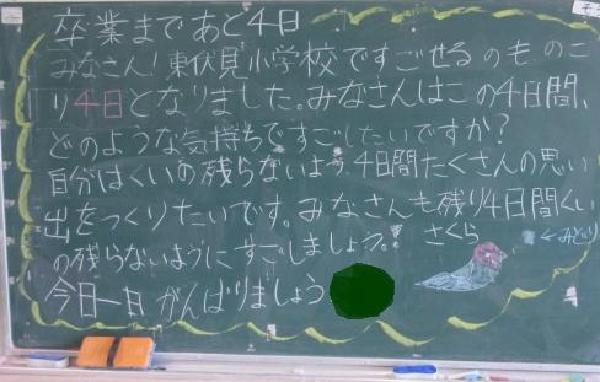 卒業まであと4日
みなさん!東伏見小学校ですごせるのものこ
り4日となりました。みなさんはこの4日間、
どのような気持ちですごしたいですか?
自分はくいの残らないよう、4日間たくさんの思い
出をつくりたいです。みなさんも残り4日間くい
の残らないようにすごしましょう。
さくら
←みどり
今日一日がんばりましょう